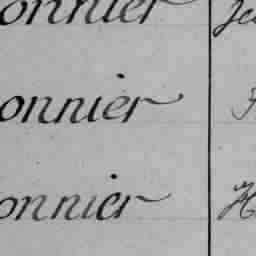 onnier Je
onnier
onnier H